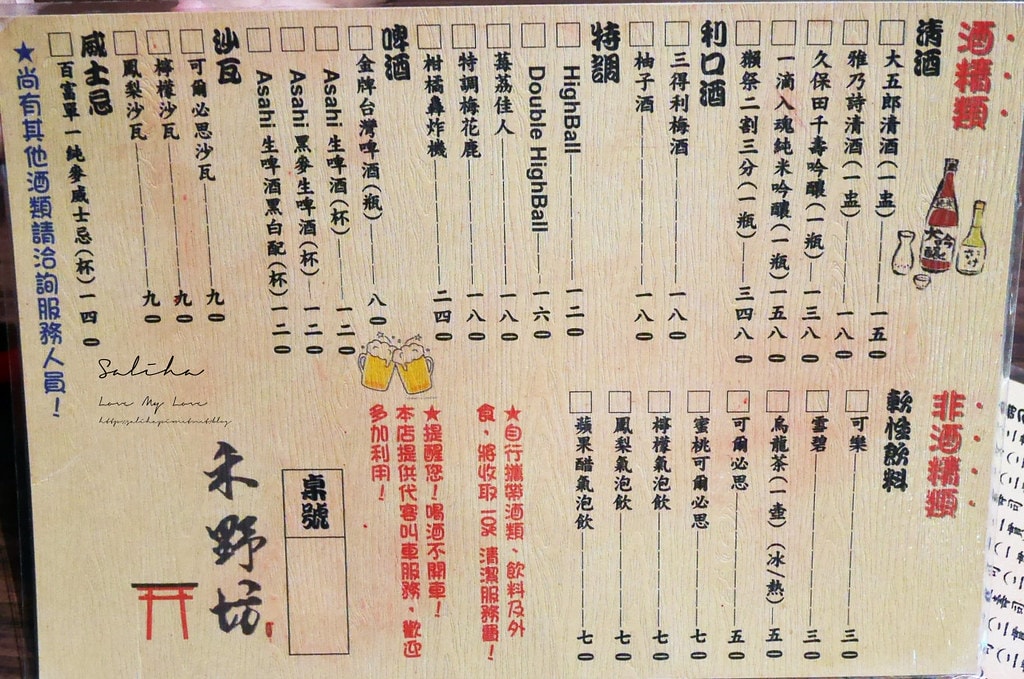 酒精類
清酒
大五郎清酒(一盅) 一五0
雅乃詩清酒(一盅) 一八0
久保田千壽吟釀(一瓶) 一三八0
一滴入魂純米吟釀(一瓶) 一五八0
獺祭二割三分(一瓶) 三四八0
利口酒
三得利梅酒 一八0
柚子酒 一八0
特調
HighBall 一二0
Double HighBall 一六0
莓荔佳人 一八0
特調梅花鹿 一八0
柑橘轟炸機 二四0
啤酒
金牌台灣啤酒(瓶) 八0
Asahi 生啤酒(杯) 一二0
Asahi 黑麥生啤酒(杯) 一二0
Asahi 生啤酒黑白配(杯) 一二0
沙瓦
可爾必思沙瓦 九0
檸檬沙瓦 九0
鳳梨沙瓦 九0
威士忌
百富單一純麥威士忌(杯) 一四0
★尚有其他酒類請洽詢服務人員!
非酒精類
軟性飲料
可樂 三0
雪碧 三0
烏龍茶(一壺)(冰/熱) 五0
可爾必思 五0
蜜桃可爾必思 七0
檸檬氣泡飲 七0
鳳梨氣泡飲 七0
蘋果醋氣泡飲 七0
★自行攜帶酒類、飲料及外
食,將收取 10% 清潔服務費!
★提醒您!喝酒不開車!
本店提供代客叫車服務,歡迎
多加利用!
桌號
禾野坊
Saliha
Love My Love